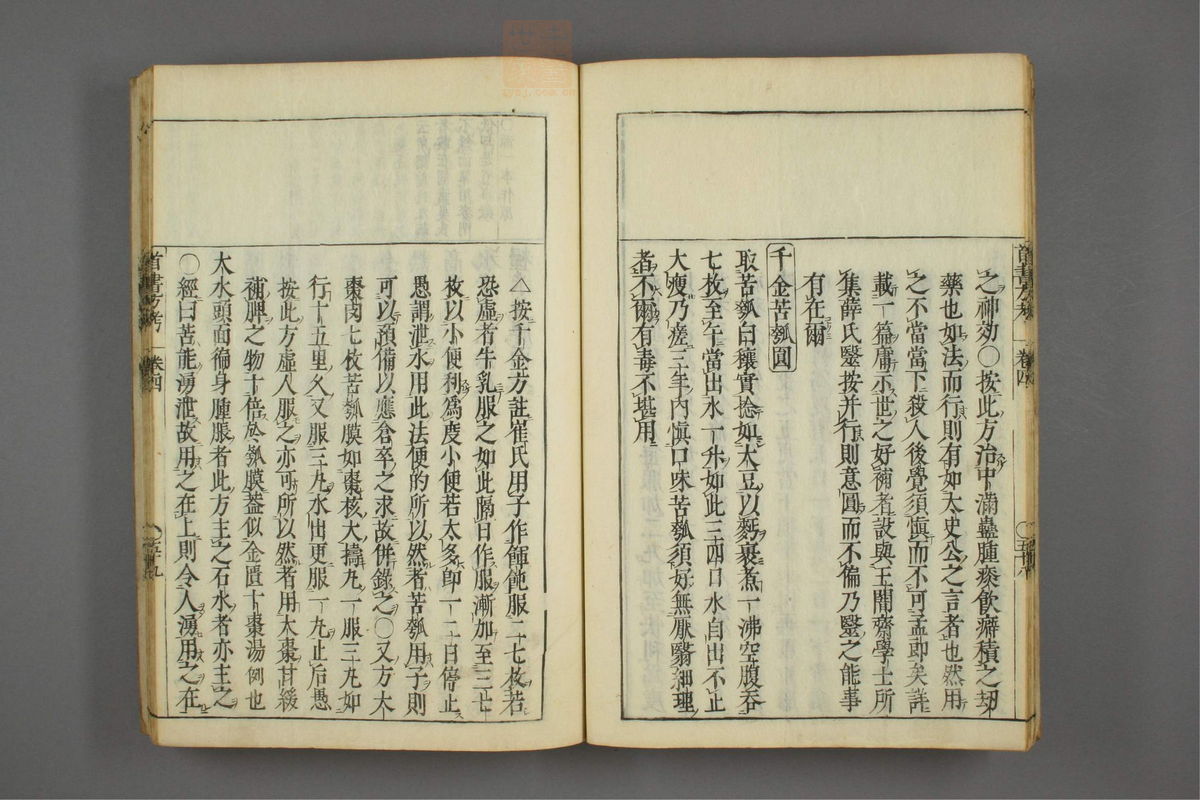 之神効〇按此方治中滿蠱腫痰飲癖積之刼
藥也如法而行則有如太史公之言者也然用
之不當當下殺人後覺須慎而不可孟即矣詳
載一篇庸示世之好補者設與王閒齋學士所
集薛氏醫按并行則意圓而不偏乃醫之能事
有在爾
千金苦瓠圓
取苦瓠白穰實捻如大豆以麪裹煮一沸空腹吞
七枚至午當出水一升如此三四日水自出不止
大瘦乃瘥三年內慎口味苦瓠須好無厭翳細理
者不爾有毒不堪用
△按千金方註崔氏用子作餛飩服二七枚若
恐虛者牛乳服之如此隔日作服漸加至三七
枚以小便利為度小便若太多即一二日停止
愚謂泄水用此法便的所以然者苦瓠用子則
可以預備以應倉卒之求故併錄之〇又方大
棗肉七枚苦瓠膜如棗核大擣丸一服三丸如
行十五里久又服三丸水出更服一丸止后愚
按此方虛人服之亦可所以然者用大棗甘緩
補脾之物十倍於瓠膜蓋似金匱十棗湯例也
大水頭面徧身腫脹者此方主之石水者亦主之
〇經曰苦能湧泄故用之在上則令人湧用之在
首書方考
卷四